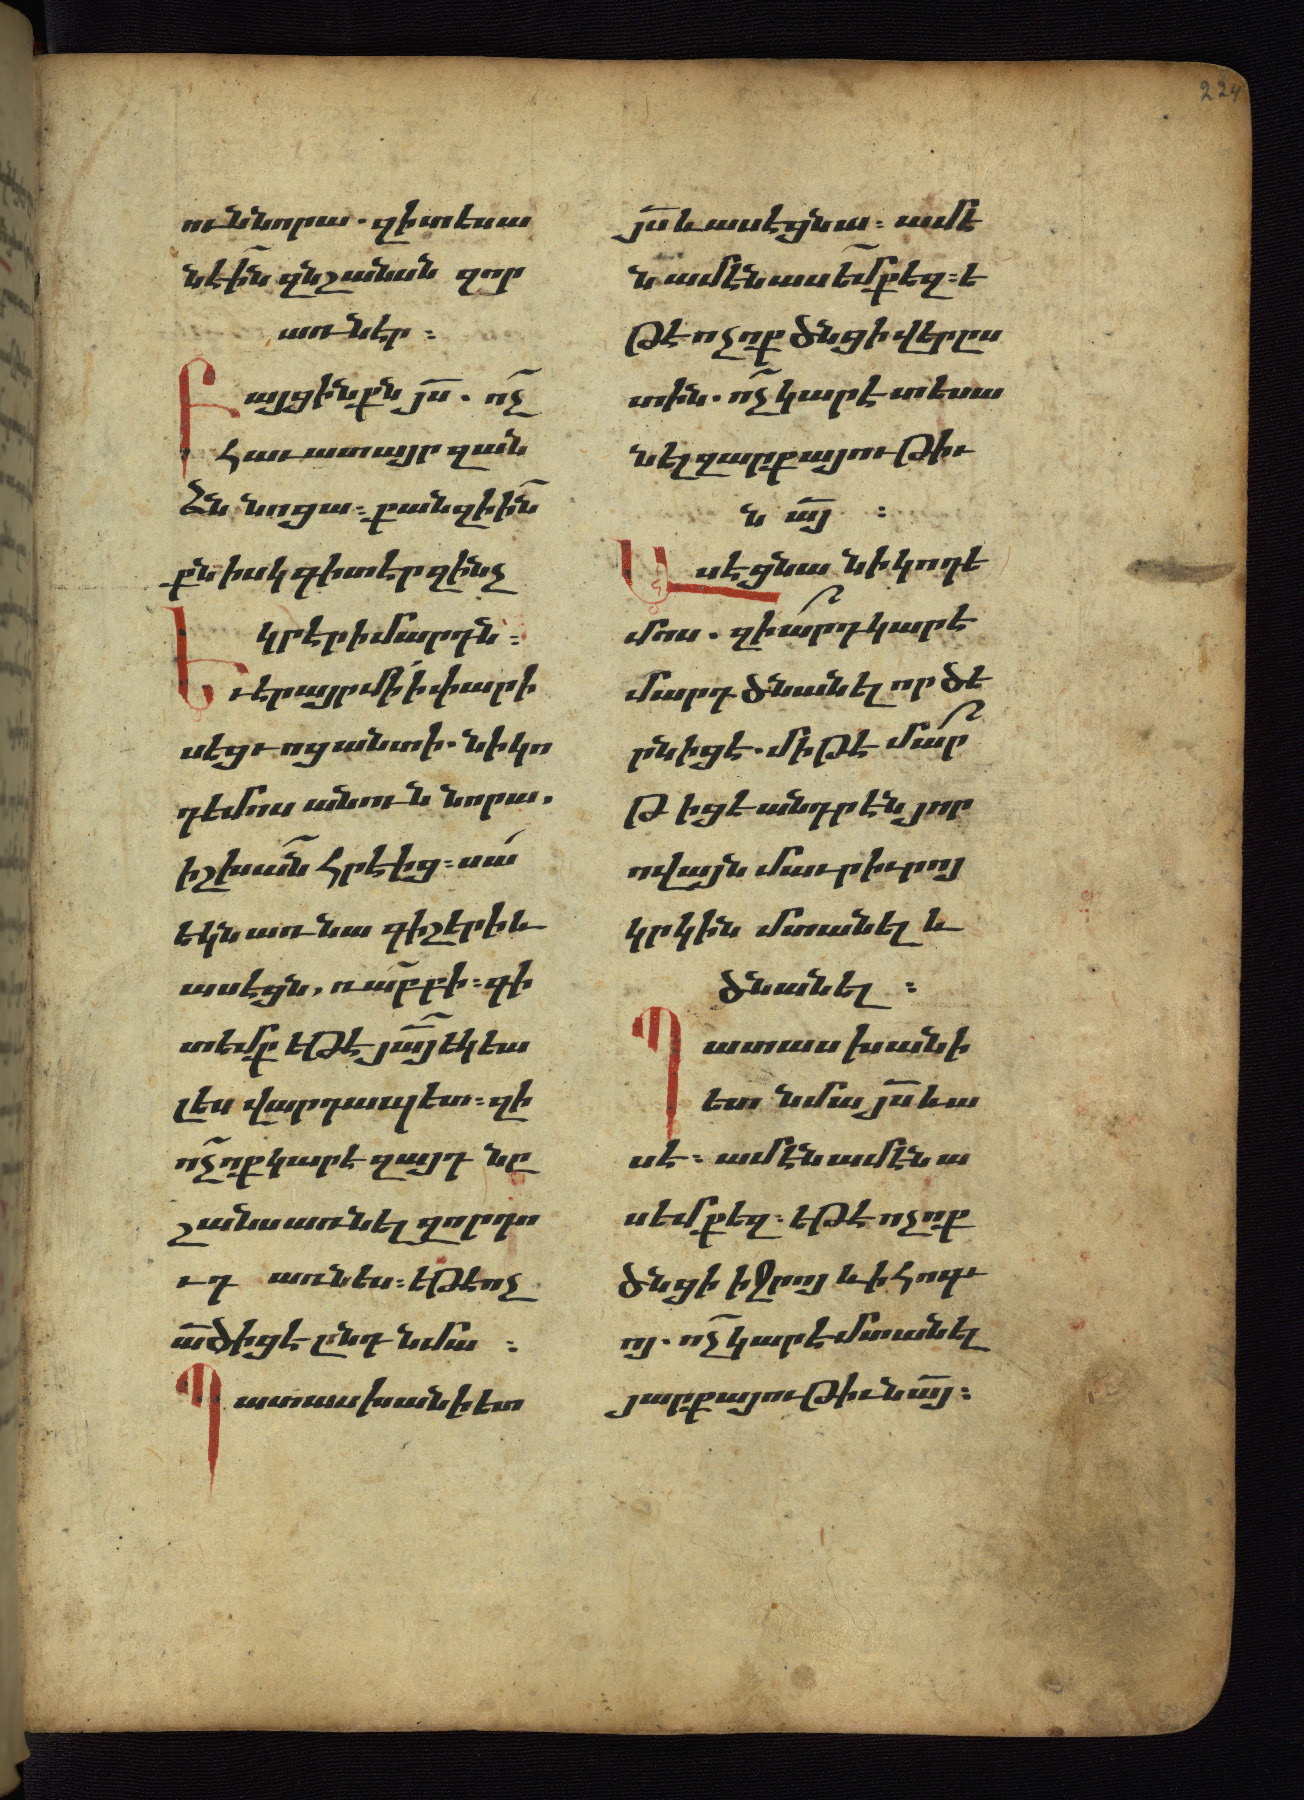 224
ուննորա. զի տեսա
նէին զնշանսն զոր
առնէր ։
Բայց ինքն յս̄. ոչ̄
հաւատայր զան
ձն նոցա։ քանզի ին̄
քն իսկ գիտէր զինչ
կրէր ի մարդն ։
Եւ էր այր մի ի փարի
սեցւոց անտի. նիկո
դեմոս անուն նորա,
իշխան̄ հրէից։ սա՛
եկն առ նա գիշերի և
ասէ ցն, ռա̄բբի։ գի
տեմք եթէ յա̄յ եկեա
լես վարդապետ։ զի
ոչ̄ ոք կարէ զայդ նը
շանս առնել զոր դո
ւդ առնես։ եթէ ոչ
ա̄ծ իցէ ընդ նմա ։
Պատասխանի ետ
յս̄ և ասէ ցնա։ ամէ
ն ամէն ասեմ քեզ։ ե
թէ ոչ ոք ծնցի վերըս
տին. ոչ̄ կարէ տեսա
նել զարքայութիւ
ն ա̄յ ։
Ասէ ցնա նիկոդե
մոս. զիա՞րդ կարէ
մարդ ծնանել որ ծե
րն իցէ. միթէ մա՞ր
թ իցէ անդրէն յոր
ովայն մաւր իւրոյ
կրկին մտանել և
ծնանել ։
Պատասխանի
ետ նմա յս̄ և ա
սէ։ ամէն ամէն ա
սեմ քեզ։ եթէ ոչ ոք
ծնցի ի ջրոյ և ի հոգւ
ոյ. ոչ̄ կարէ մտանել
յարքայութիւն ա̄յ։